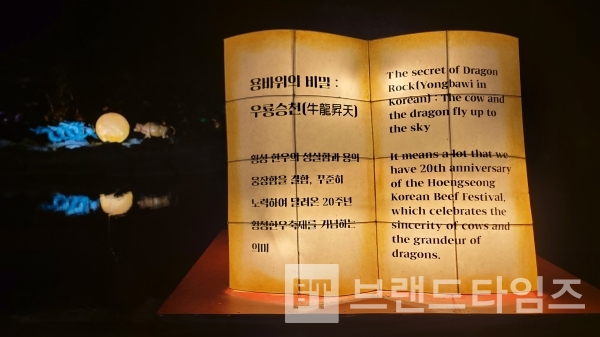 용바위의 비밀 :
우룡승천(牛龍昇天)
횡성 한우의 성실함과 용의
웅장함을 결합, 꾸준히
노력하여 달려온 20주년
횡성한우축제를 기념하는
의미
The secret of Dragon
Rock(Yongbawi in
Korean) : The cow and
the dragon fly up to
the sky
It means a lot that we
have 20th anniversary
of the Hoengseong
Korean Beef Festival,
which celebrates the
sincerity of cows and
the grandeur of
dragons.
브랜드타임즈